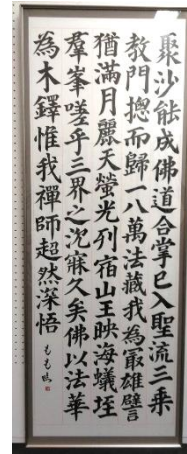 聚沙能成佛道合掌已入聖流三乘
教門摠而歸一八萬法藏我為㝡雄譬言
猶滿月麗天螢光列宿山王映海蟻垤
羣峯嗟乎三界之沈寐久矣佛以法華
為木鐸惟我禪師超然深悟